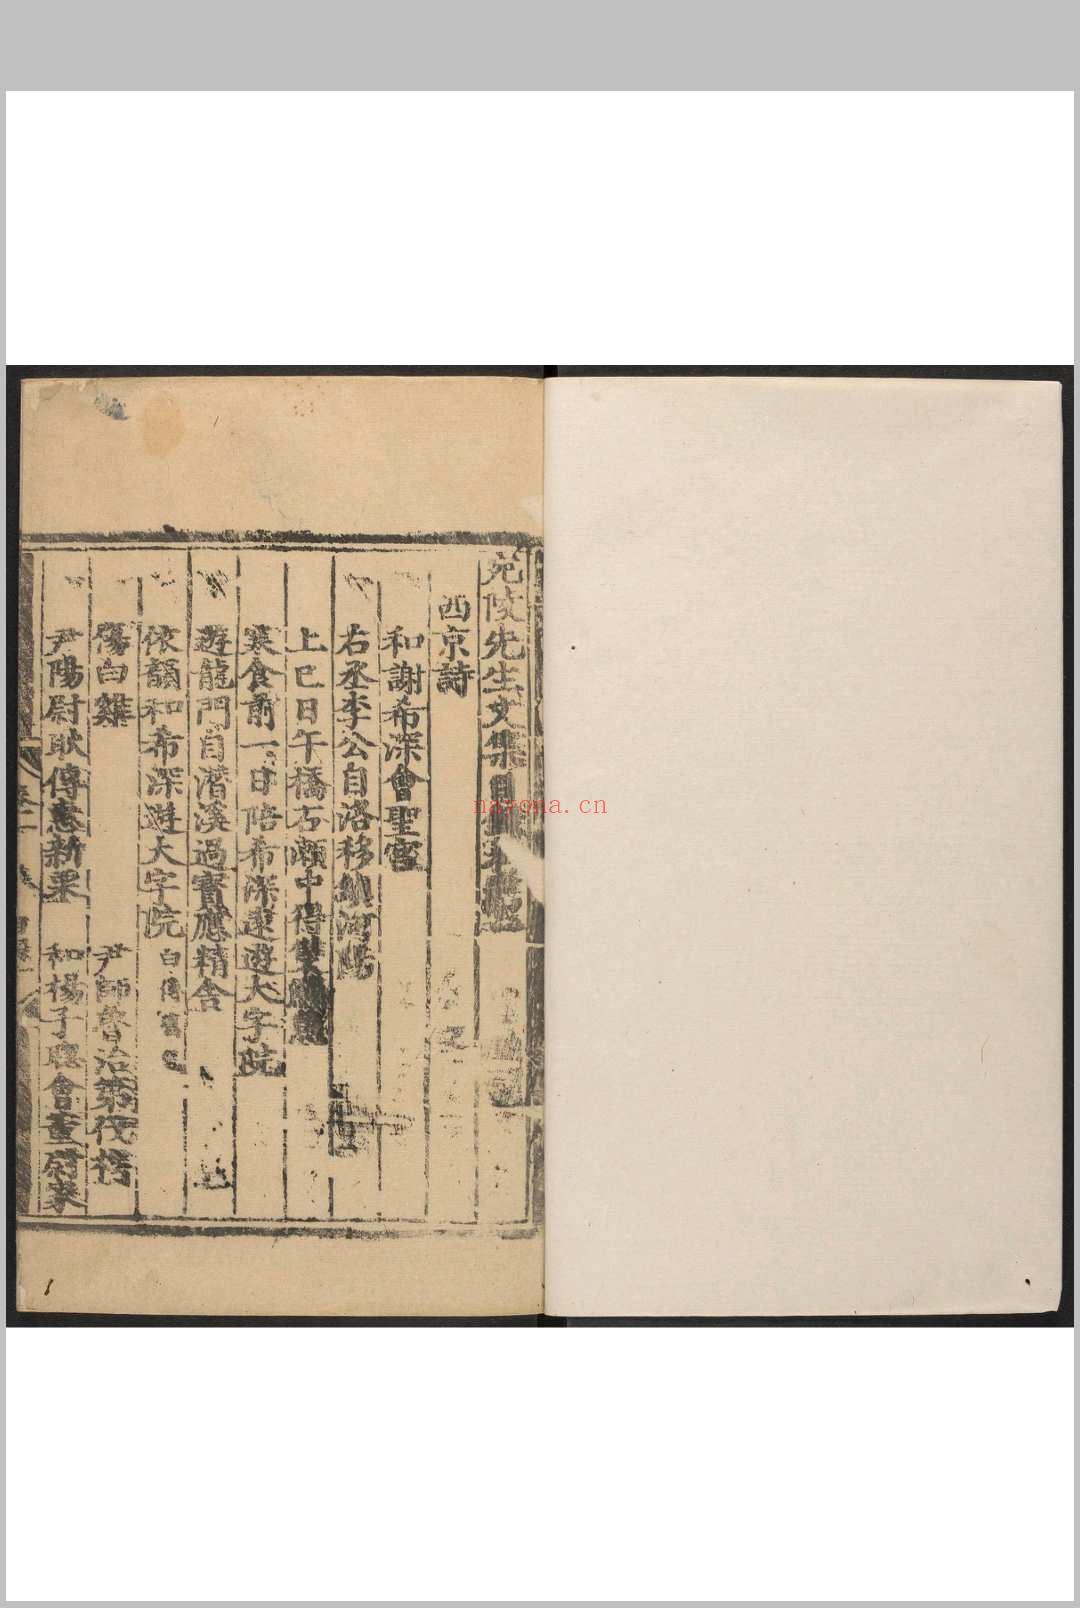 宛陵先生文集目
西京詩
和謝希深會聖宮
右丞李公自洛移鎮河陽
上巳日午橋石瀨中得雙鱖魚
寒食前一日陪希深遠遊大字院
遊龍門自潛溪過寶應精舍
依韻和希深遊大字院 白傅舊宅
傷白雞 尹師魯治第伐樗
尹陽尉耿傳惠新栗 和楊子聰會董尉家
nayona.cn